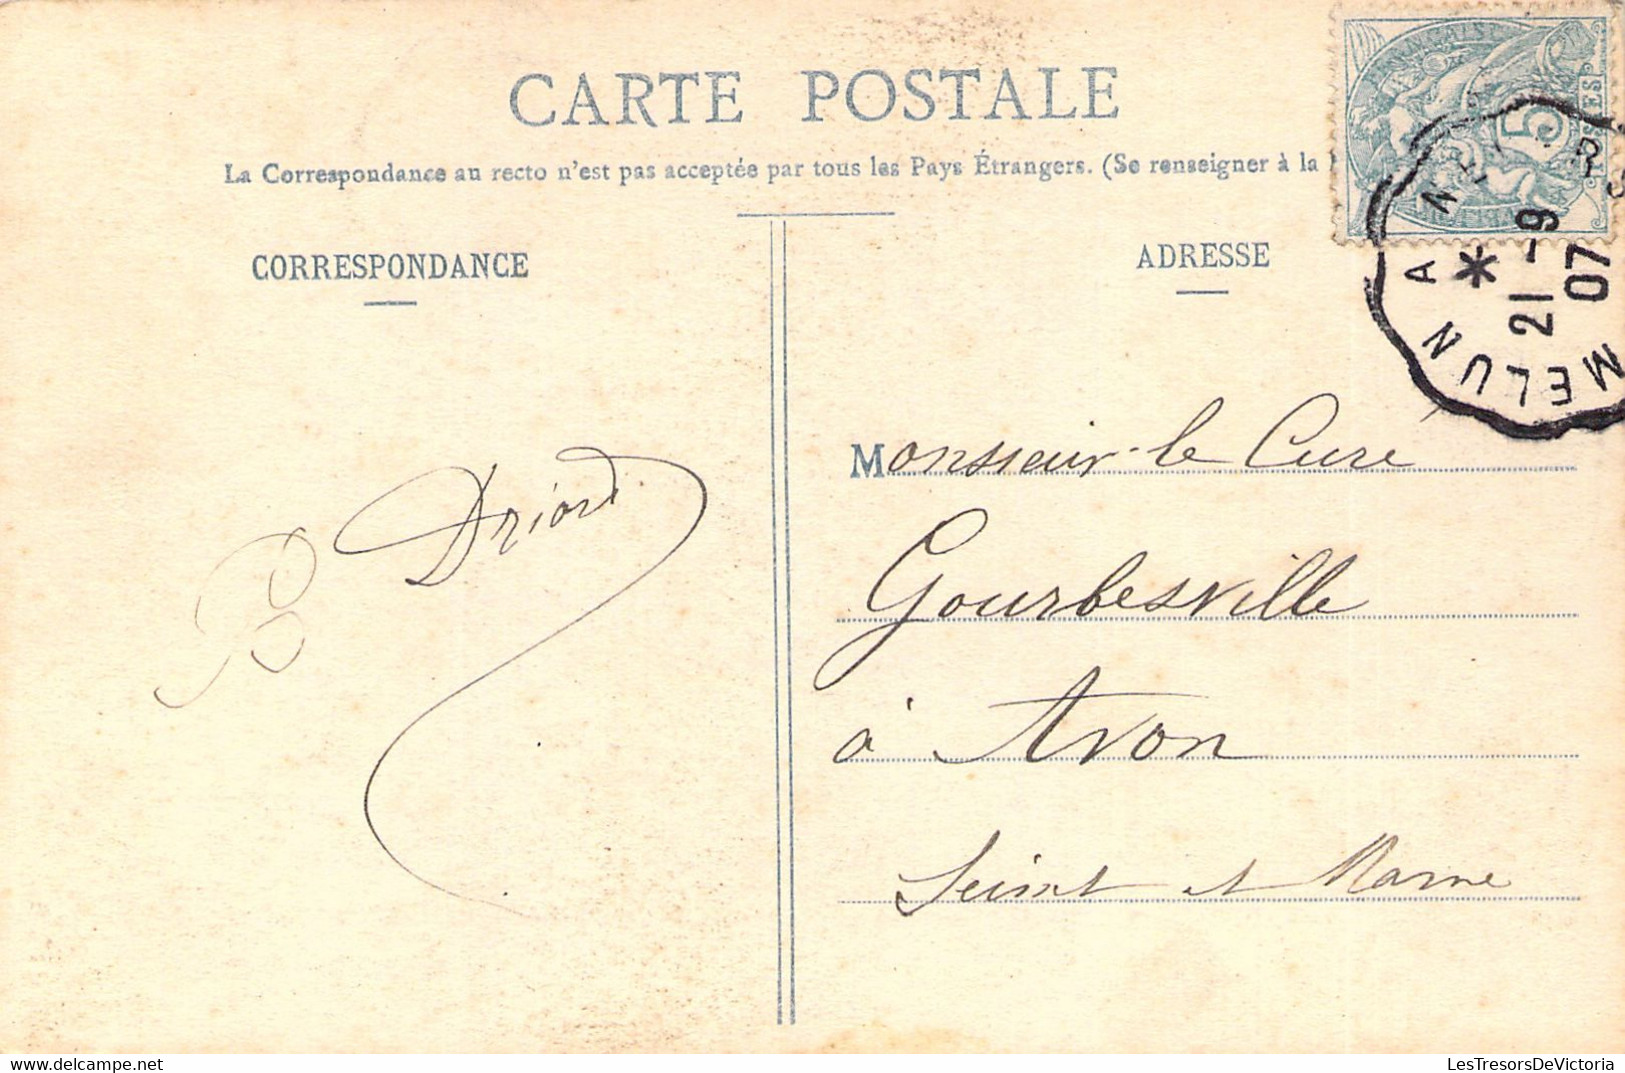 CARTE POSTALE
La Correspondance au recto n'est pas acceptée par tous les Pays Étrangers. (Se renseigner à la
CORRESPONDANCE
ADRESSE
5
MELUN A
21 -9
07
Monsieur le Curé
Gourbesville
à Avon
Seine et Marne
B Driard
LesTresorsDeVictoria.com